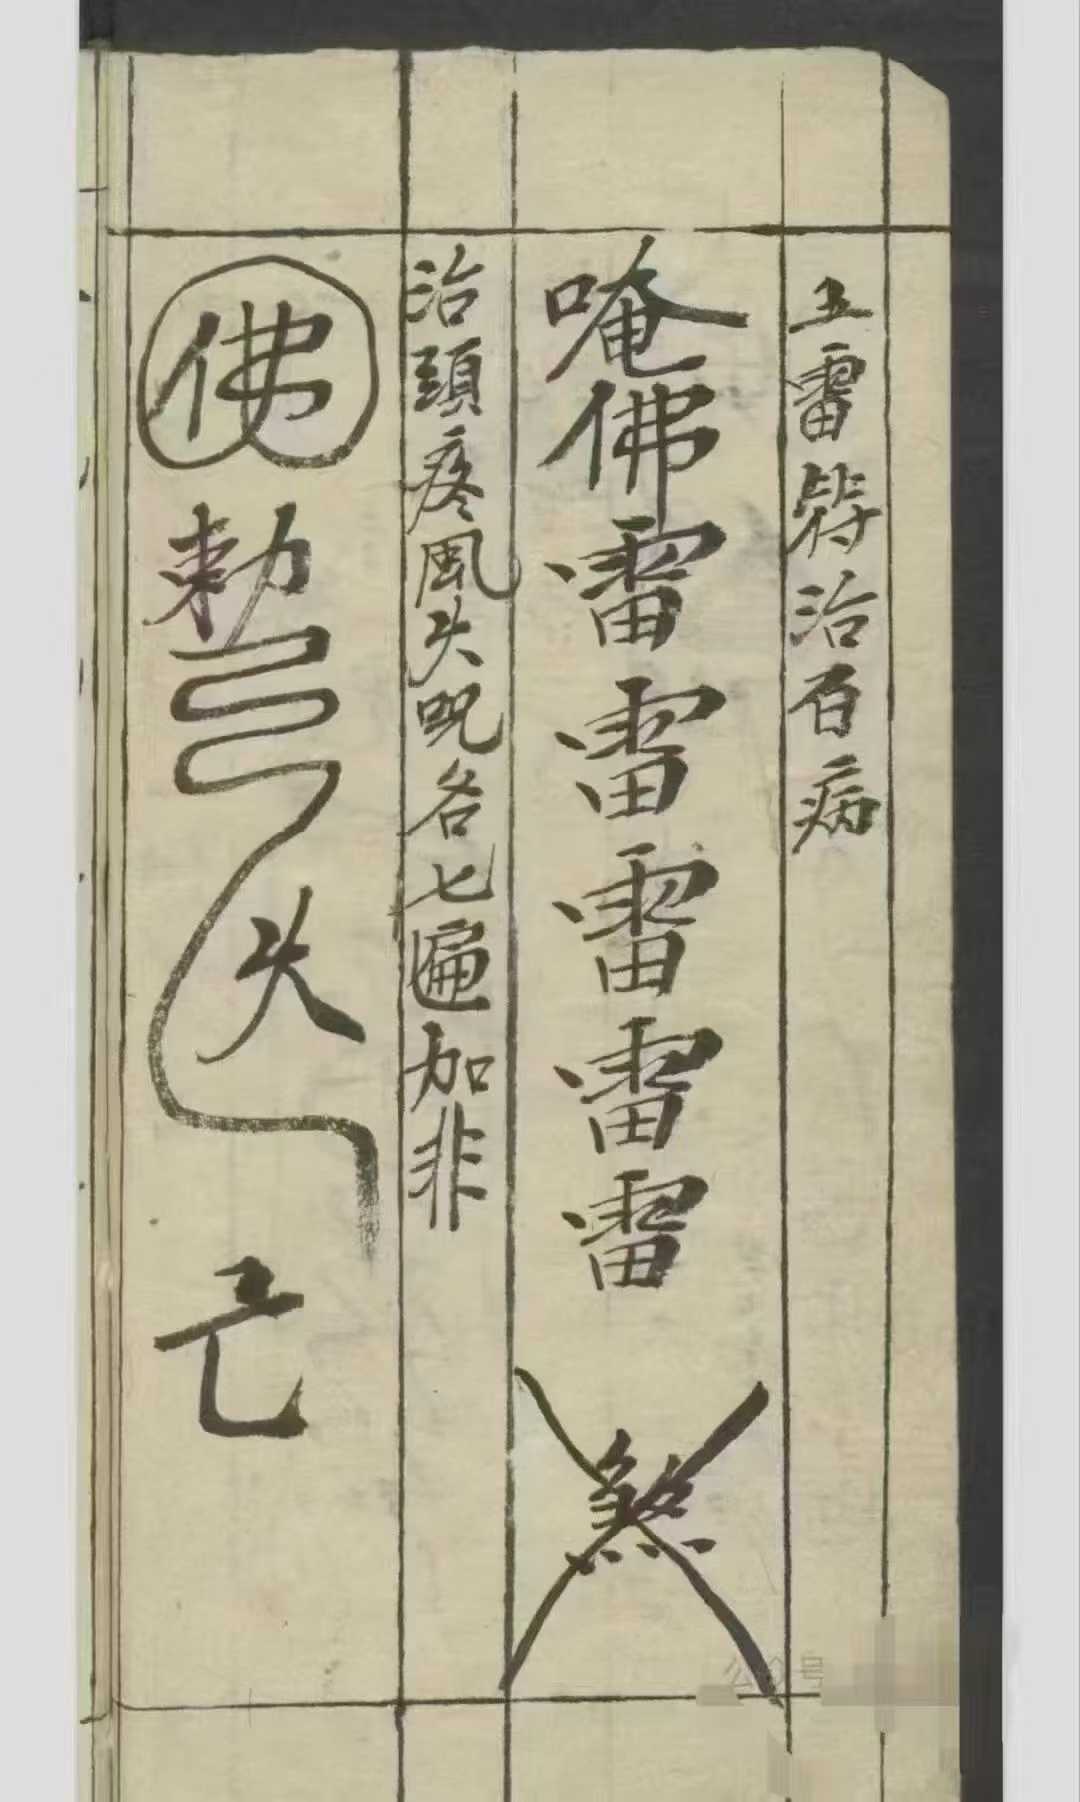 五雷符治百病
唵佛雷雷雷雷雷煞
治頭疼風火咒各七遍加非
佛勅火亡
公众号